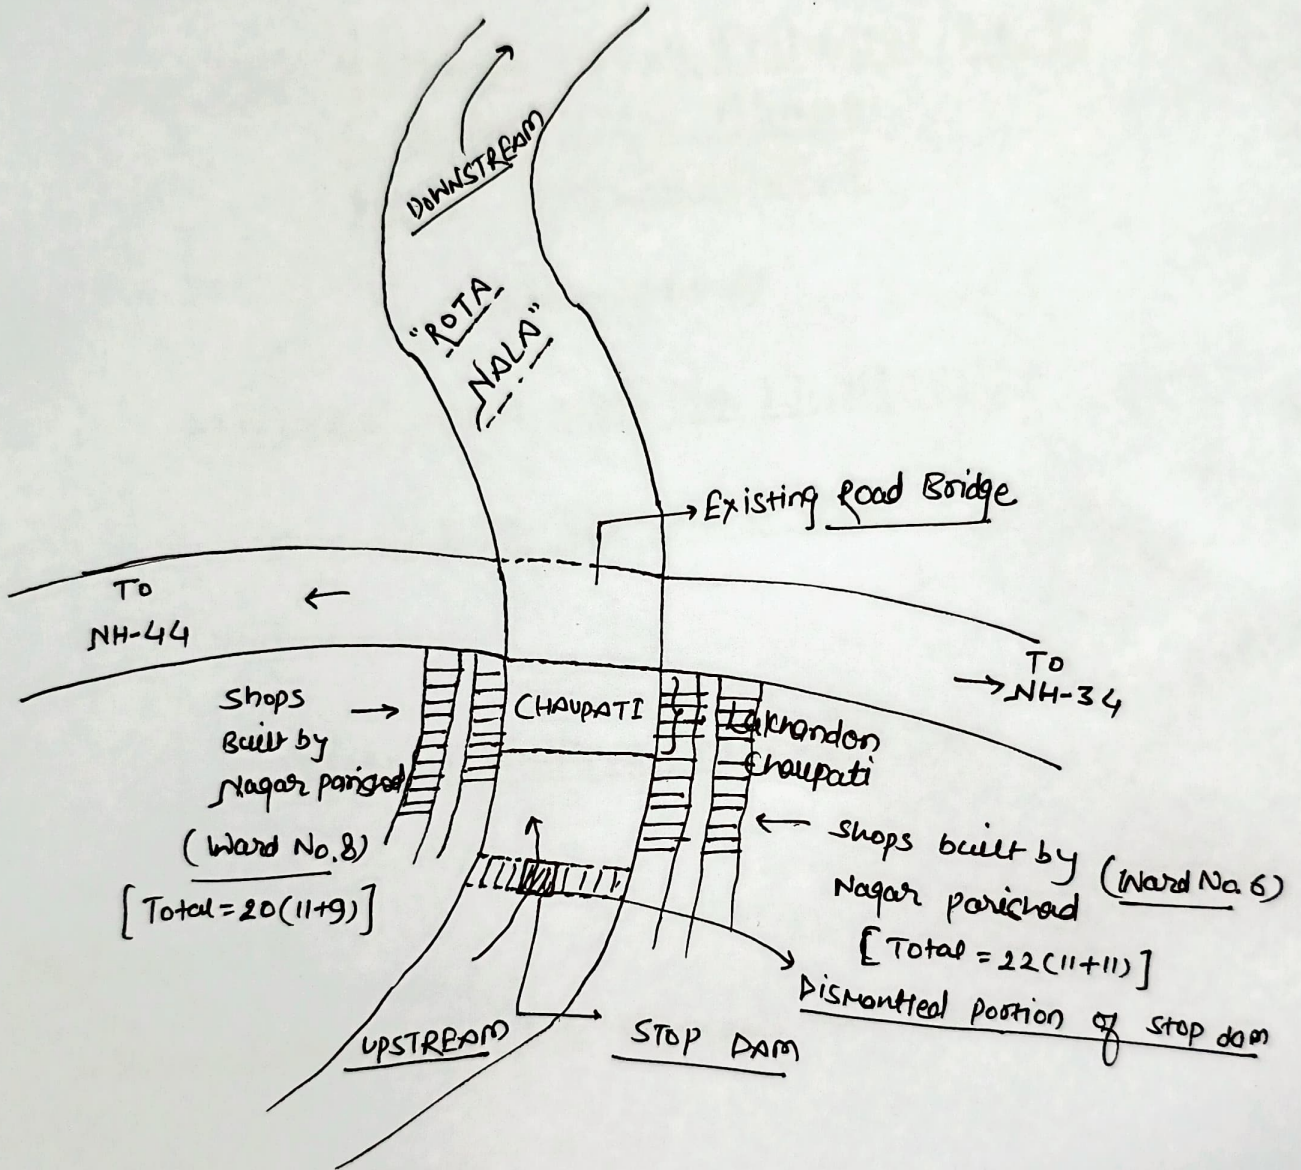 DOWNSTREAM
"ROTA
NALA"
Existing Road Bridge
TO
NH-44
TO
NH-34
Shops
Built by
Nagar parishad
(Ward No. 8)
[Total = 20 (11+9)]
CHAUPATI
Lakhandon
Chaupati
shops built by
Nagar parishad
(Ward No. 6)
[Total = 22 (11+11)]
Dismantled portion of stop dam
UPSTREAM
STOP DAM